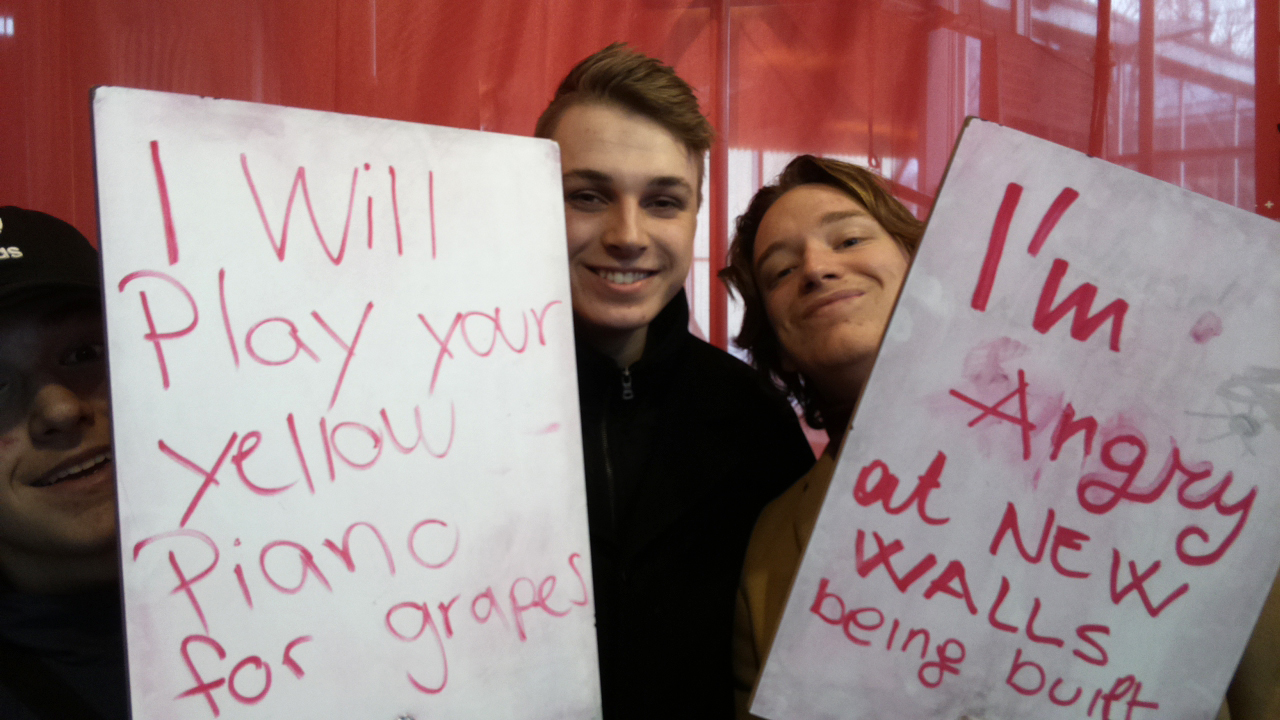 as
I Will
Play your
yellow -
Piano
for grapes
I'm
Angry
at NEW
WALLS
being built